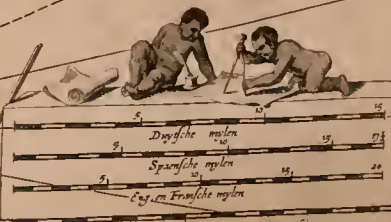 5 10 15
Duytsche mylen
5 10 15 17½
Spaensche mylen
5 10 15 20
Eng. en Fransche mylen